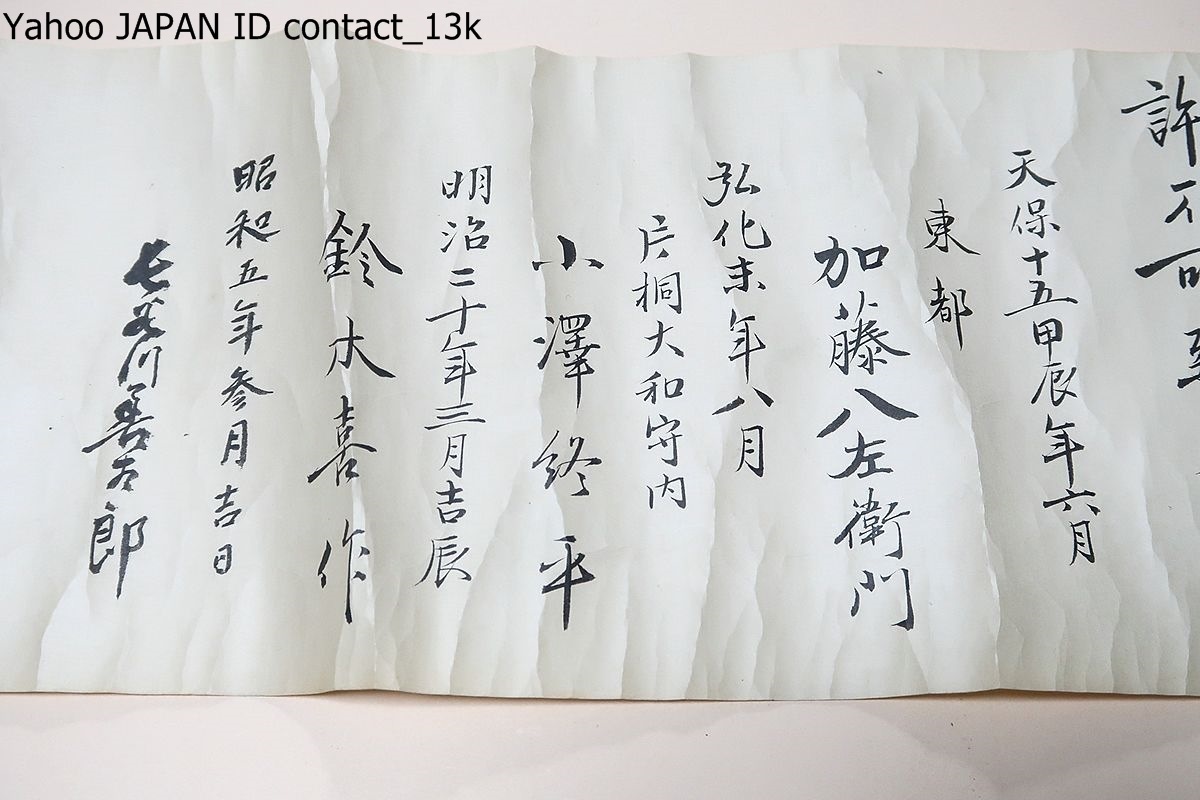 Yahoo JAPAN ID contact_13k
許不可
天保十五甲辰年六月
東都
加藤八左衛門
弘化未年八月
片桐大和守内
小澤終平
明治二十年三月吉辰
鈴木喜作
昭和五年参月吉日
川善太郎